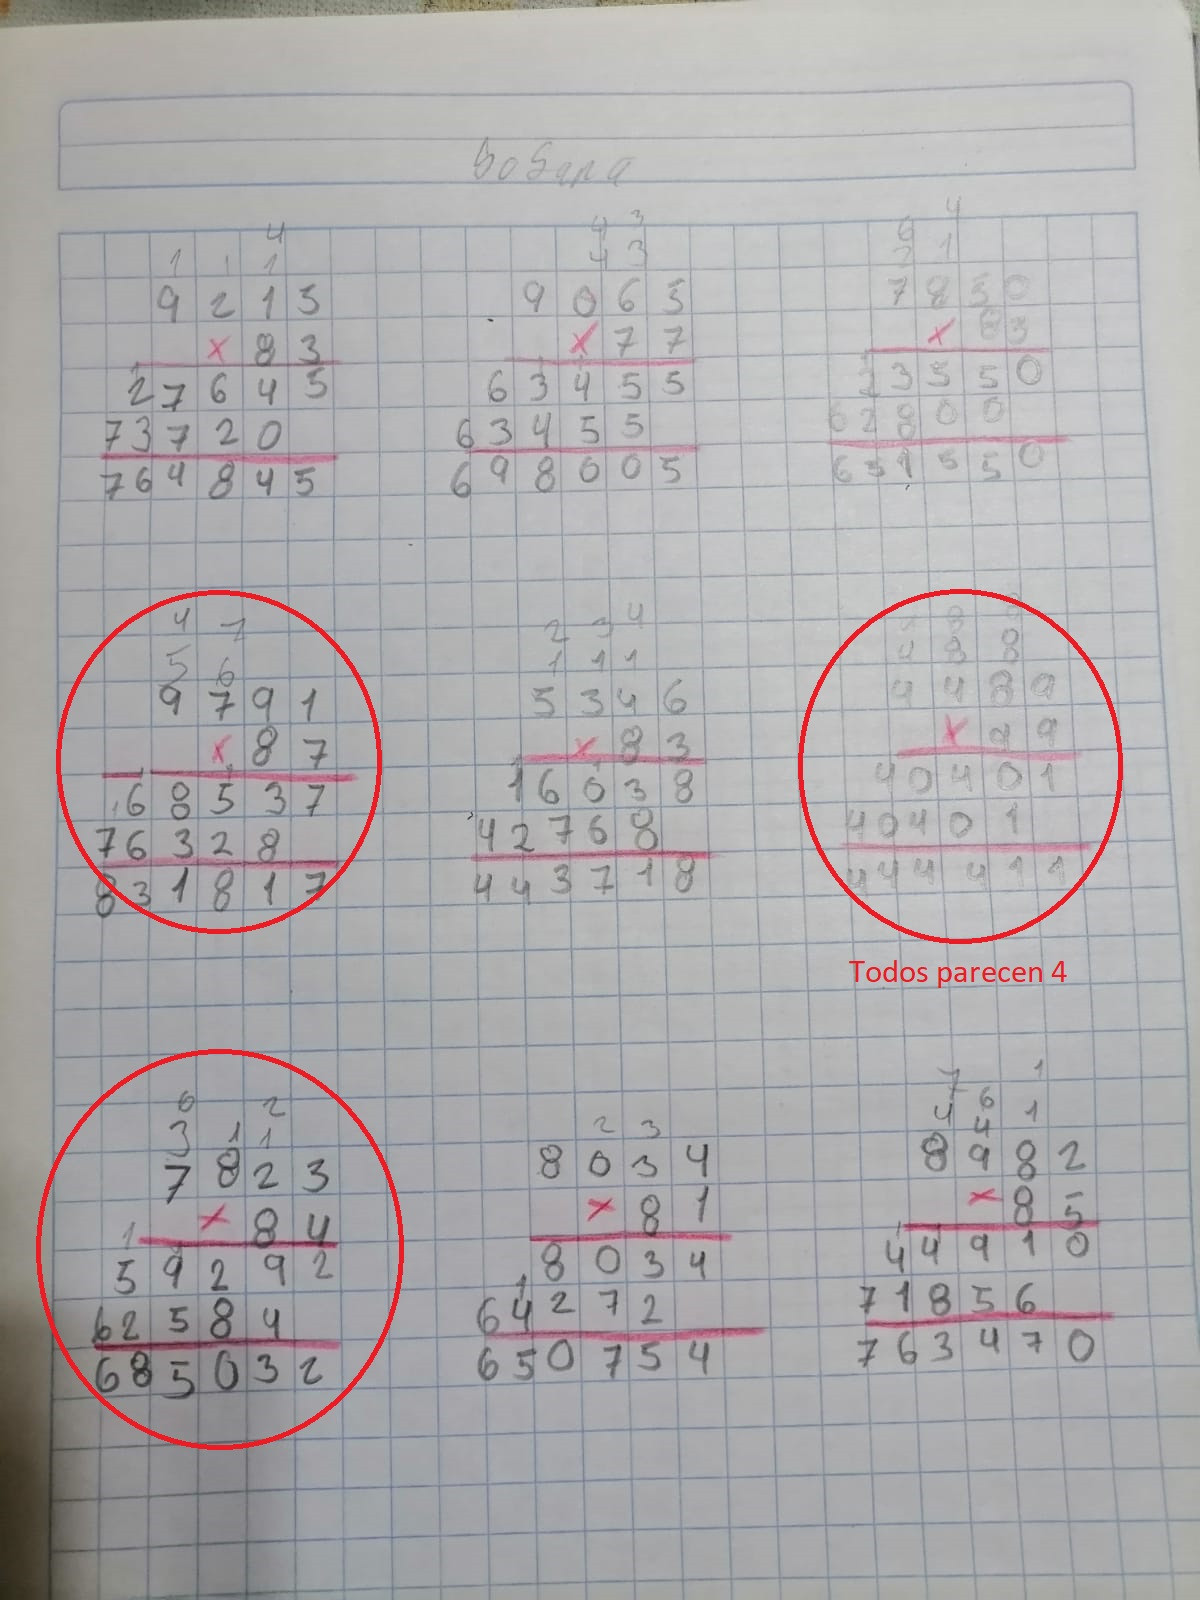 4
1 1 1
9 2 1 5
x 8 3
2 7 6 4 5
7 3 7 2 0
7 6 4 8 4 5
4 3
4 3
9 0 6 5
x 7 7
6 3 4 5 5
6 3 4 5 5
6 9 8 0 0 5
4
6
2 1
7 8 5 0
x 8 3
2 3 5 5 0
6 2 8 0 0
6 5 1 5 5 0
4 7
5 6
9 7 9 1
x 8 7
6 8 5 3 7
7 6 3 2 8
8 3 1 8 1 7
2 3 4
1 1 1
5 3 4 6
x 8 3
1 6 0 3 8
4 2 7 6 8
4 4 3 7 1 8
4 8 8
4 4 8 9
x 9 9
4 0 4 0 1
4 0 4 0 1
4 4 4 4 1 1
Todos parecen 4
6 2
3 1 1
7 8 2 3
1 x 8 4
5 9 2 9 2
6 2 5 8 4
6 8 5 0 3 2
2 3
8 0 3 4
x 8 1
8 0 3 4
6 4 2 7 2
6 5 0 7 5 4
7 6 1
4 4 1
8 9 8 2
x 8 5
4 4 9 1 0
7 1 8 5 6
7 6 3 4 7 0